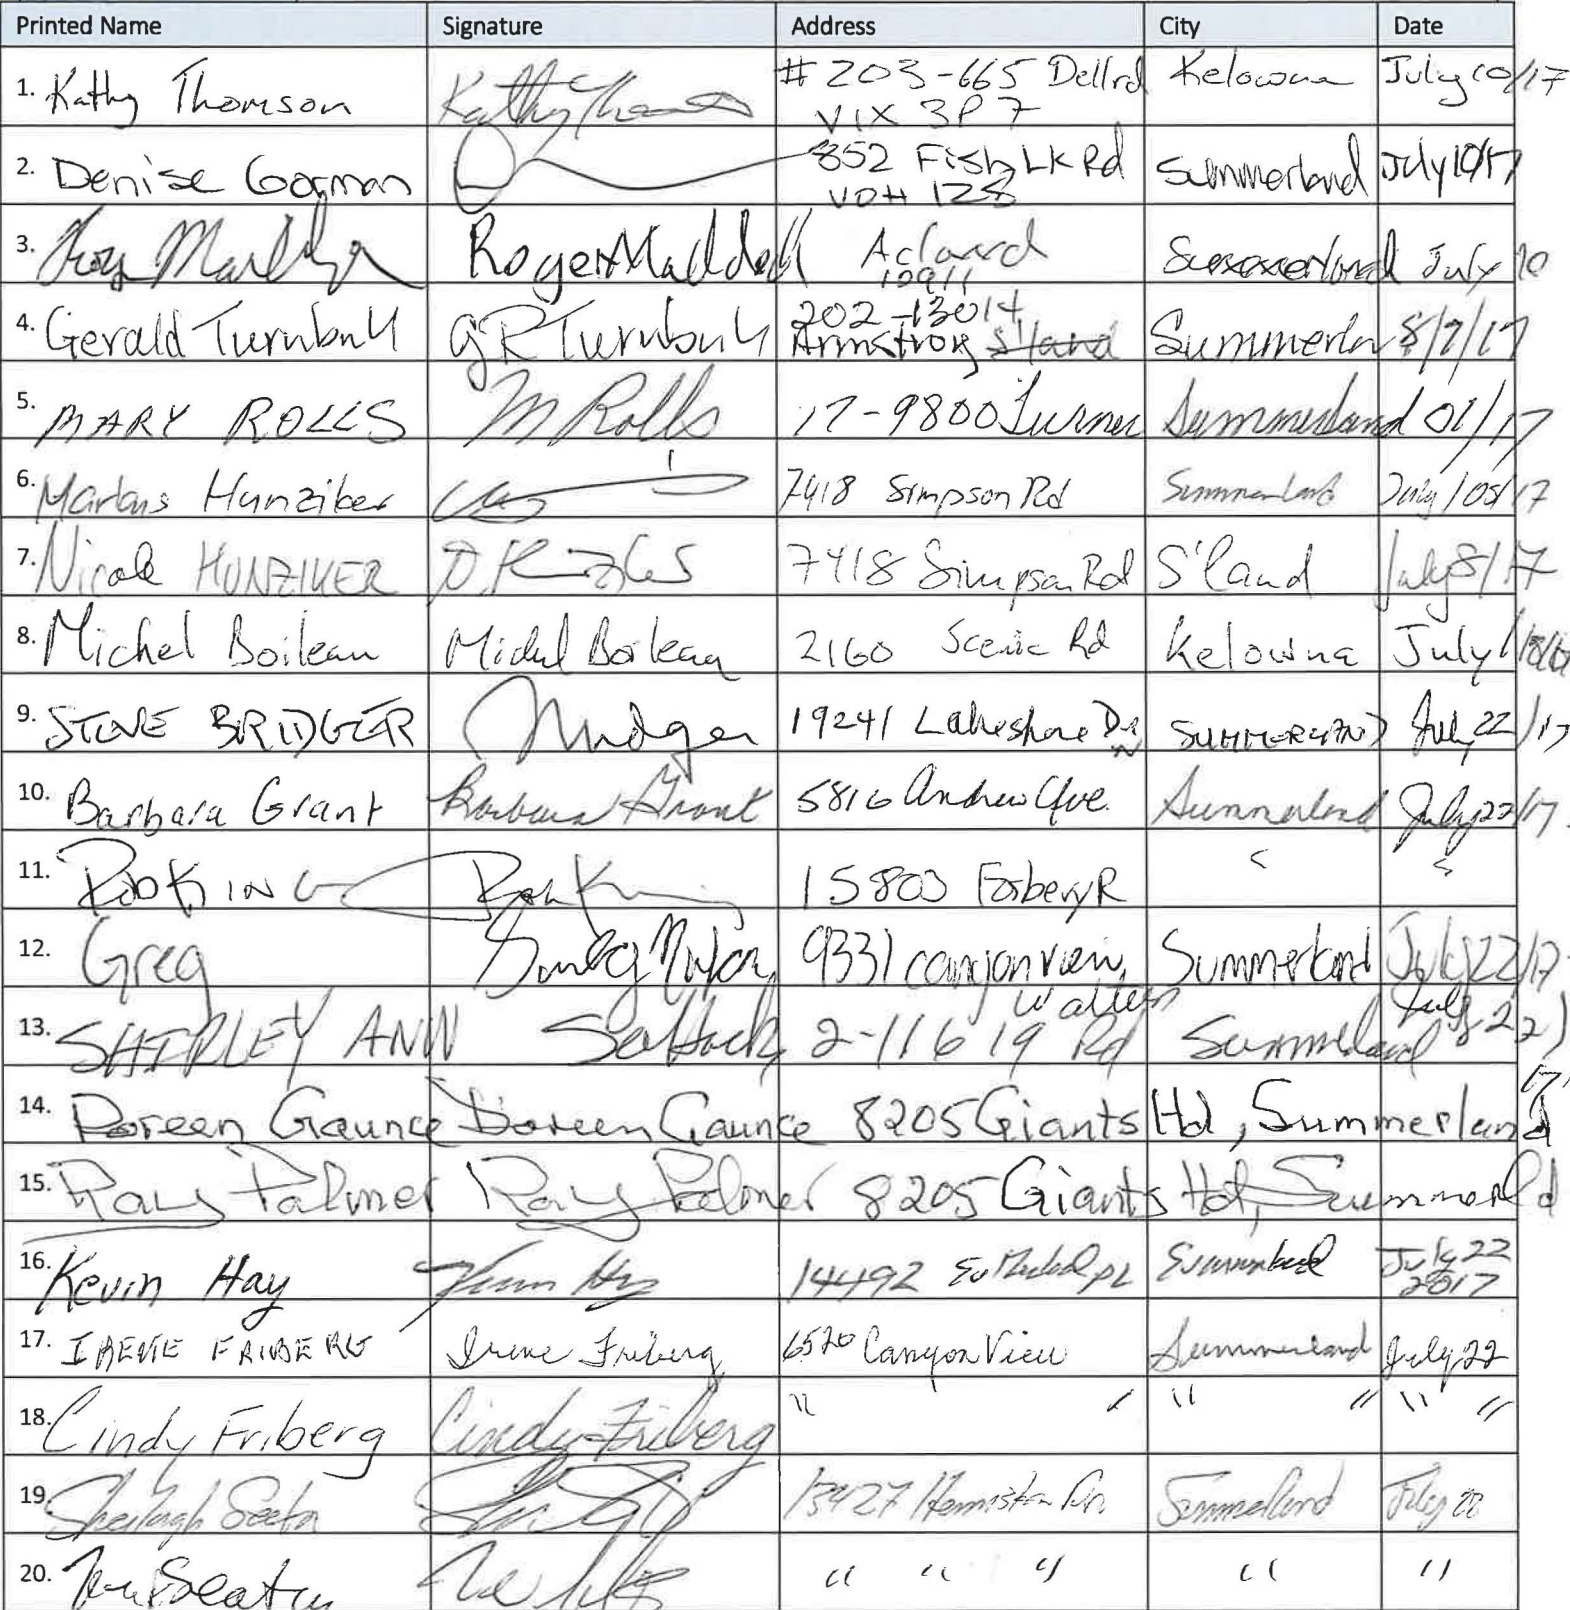 Printed Name Signature Address City Date
1. Kathy Thomson Kathy Thomson #203-665 Dellrd Kelowna July 10/17
V1X 3P7
2. Denise Gorman 852 Fish Lk Rd Summerland July 10/17
V0H 1Z8
3. Roger Maddell Summerland July 10
12911
4. Gerald Turnbull GR Turnbull 202-13014 Armstrong S'land Summerlan 8/7/17
5. MARY ROLLS M Rolls 17-9800 Turner Summerland 01/17
6. Markus Hunziker 7418 Simpson Rd Summerland July/08/17
7. Nicole HUNZIKER 7418 Simpson Rd S'land July 8/17
8. Michel Boileau Michel Boileau 2160 Scenic Rd Kelowna July
9. STEVE BRIDGER 19241 Lakeshore Dr N SUMMERLAND July 22/17
10. Barbara Grant Barbara Grant 5816 Andrew Ave. Summerland July 22/17
11. Rob KING Rob King 15803
12. Greg 9331 canyonview Summerland July 22/17
13. SHIRLEY ANN 2-11619 Walters Rd Summerland July 22/17
14. Doreen Gaunce Doreen Gaunce 8205 Giants Hd, Summerland
15. Ray Palmer Ray Palmer 8205 Giants Hd, Summerld
16. Kevin Hay Kevin Hay 14492 pl Summerland July 22 2017
17. IRENE FRIBERG Irene Friberg 6520 Canyon View Summerland July 22
18. Cindy Friberg Cindy Friberg " " " " " "
19. Sheilagh Seaton 13427 Summerland July 22
20. Seaton " " " " "